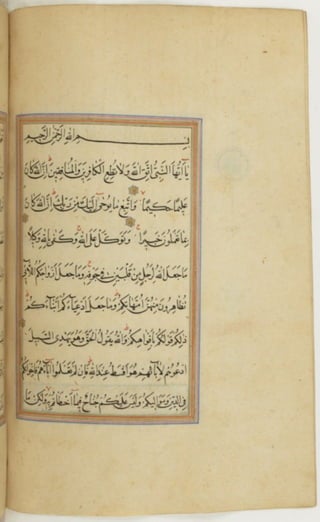 بسم الله الرحمن الرحيم
يا أيها النبي اتق الله ولا تطع الكافرين والمنافقين إن الله كان
عليما حكيما واتبع ما يوحى إليك من ربك إن الله كان
بما تعملون خبيرا وتوكل على الله وكفى بالله وكيلا
ما جعل الله لرجل من قلبين في جوفه وما جعل أزواجكم اللائي
تظاهرون منهن أمهاتكم وما جعل أدعياءكم أبناءكم
ذلكم قولكم بأفواهكم والله يقول الحق وهو يهدي السبيل
ادعوهم لآبائهم هو أقسط عند الله فإن لم تعلموا آباءهم فإخوانكم
في الدين ومواليكم وليس عليكم جناح فيما أخطأتم به ولكن ما